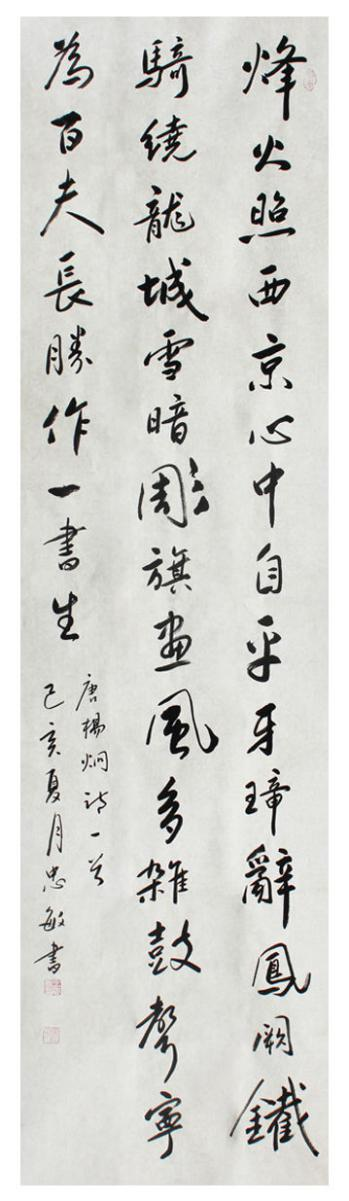 烽火照西京心中自平牙璋辭鳳闕鐵
騎繞龍城雪暗彫旗畫風多雜鼓聲寧
為百夫長勝作一書生
唐楊炯詩一首
己亥夏月忠敏書